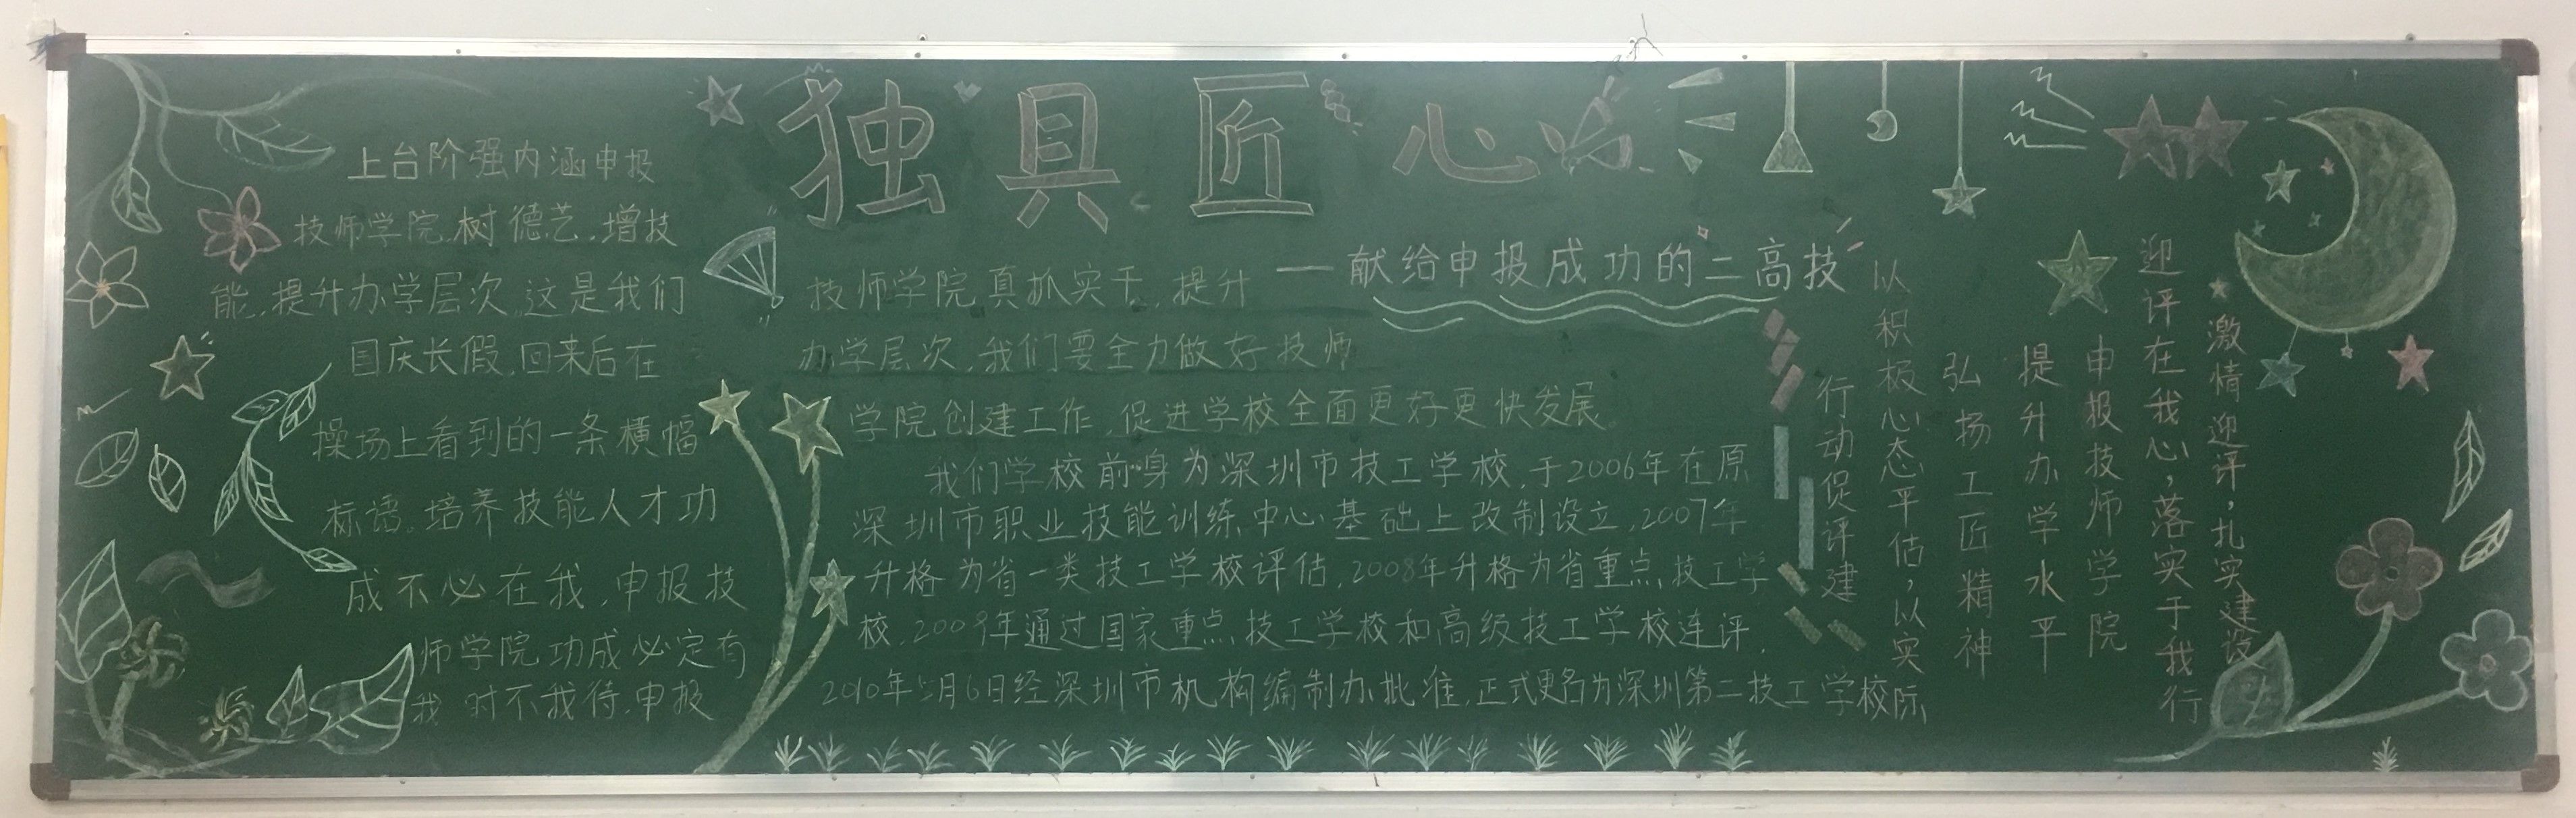 独具匠心
——献给申报成功的二高技
上台阶强内涵申报
技师学院,树德艺,增技
能,提升办学层次,这是我们
国庆长假,回来后在
操场上看到的一条横幅
标语。培养技能人才功
成不必在我,申报技
师学院功成必定有
我 时不我待,申报
技师学院真抓实干,提升
办学层次,我们要全力做好技师
学院创建工作,促进学校全面更好更快发展。
我们学校前身为深圳市技工学校,于2006年在原
深圳市职业技能训练中心基础上改制设立,2007年
升格为省一类技工学校评估,2008年升格为省重点技工学
校,2009年通过国家重点技工学校和高级技工学校连评,
2010年5月6日经深圳市机构编制办批准,正式更名为深圳第二技工学校
激情迎评,扎实建设
迎评在我心,落实于我行
申报技师学院
提升办学水平
弘扬工匠精神
以积极心态平估,以实际
行动促评建